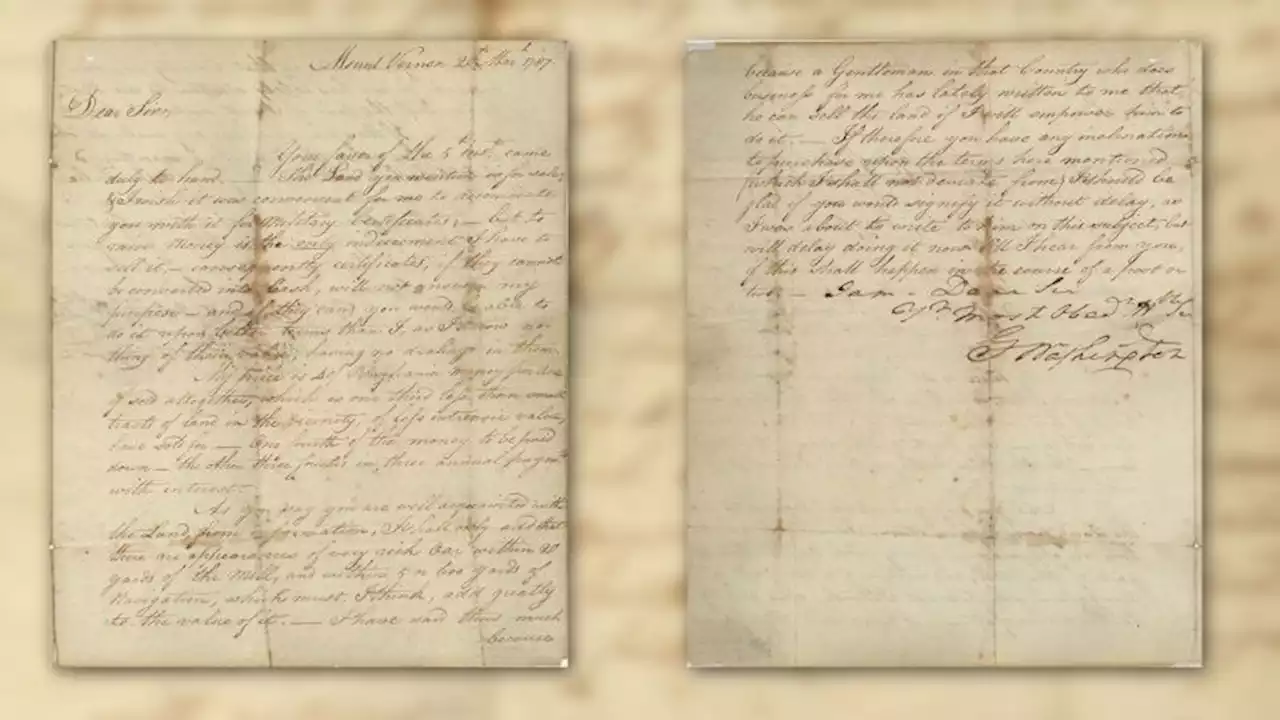 Mount Vernon 1787.
Dear Sir,
Your favor of the 5 Inst. came
duly to hand. The Land you mention is for sale,
& I wish it was convenient for me to accommodate
you with it for Military Certificates; — but to
raise money is the only inducement I have to
sell it, — consequently certificates, if they cannot
be converted into Cash, will not answer my
purpose — and if they can, you would be able to
do it upon better terms than I, as I know no
thing of their value, having no dealings in them.
My price is
if sold altogether, which is one third less than small
tracts of land in the vicinity, of less intrinsic value,
have sold for — One fourth of the money to be paid
down — the other three fourths in three annual paym
with interest.
As you say you are well acquainted with
the Land, from information, I shall only add that
there are appearances of very rich Oar within 20
yards of the Mill, and within 5 or 600 yards of
Navigation, which must, I think, add greatly
to the value of it. — I have said thus much
because
because a Gentleman in that Country who does
business for me has lately written to me that
he can sell the land if I will empower him to
do it. — If therefore you have any inclination
to purchase upon the terms here mentioned
(which I shall not deviate from) I should be
glad if you would signify it without delay, as
I was about to write to him on this subject, but
will delay doing it now till I hear from you,
if this shall happen in the course of a post or
two. — I am — Dear Sir
Yr. Most Obed. H
G Washington